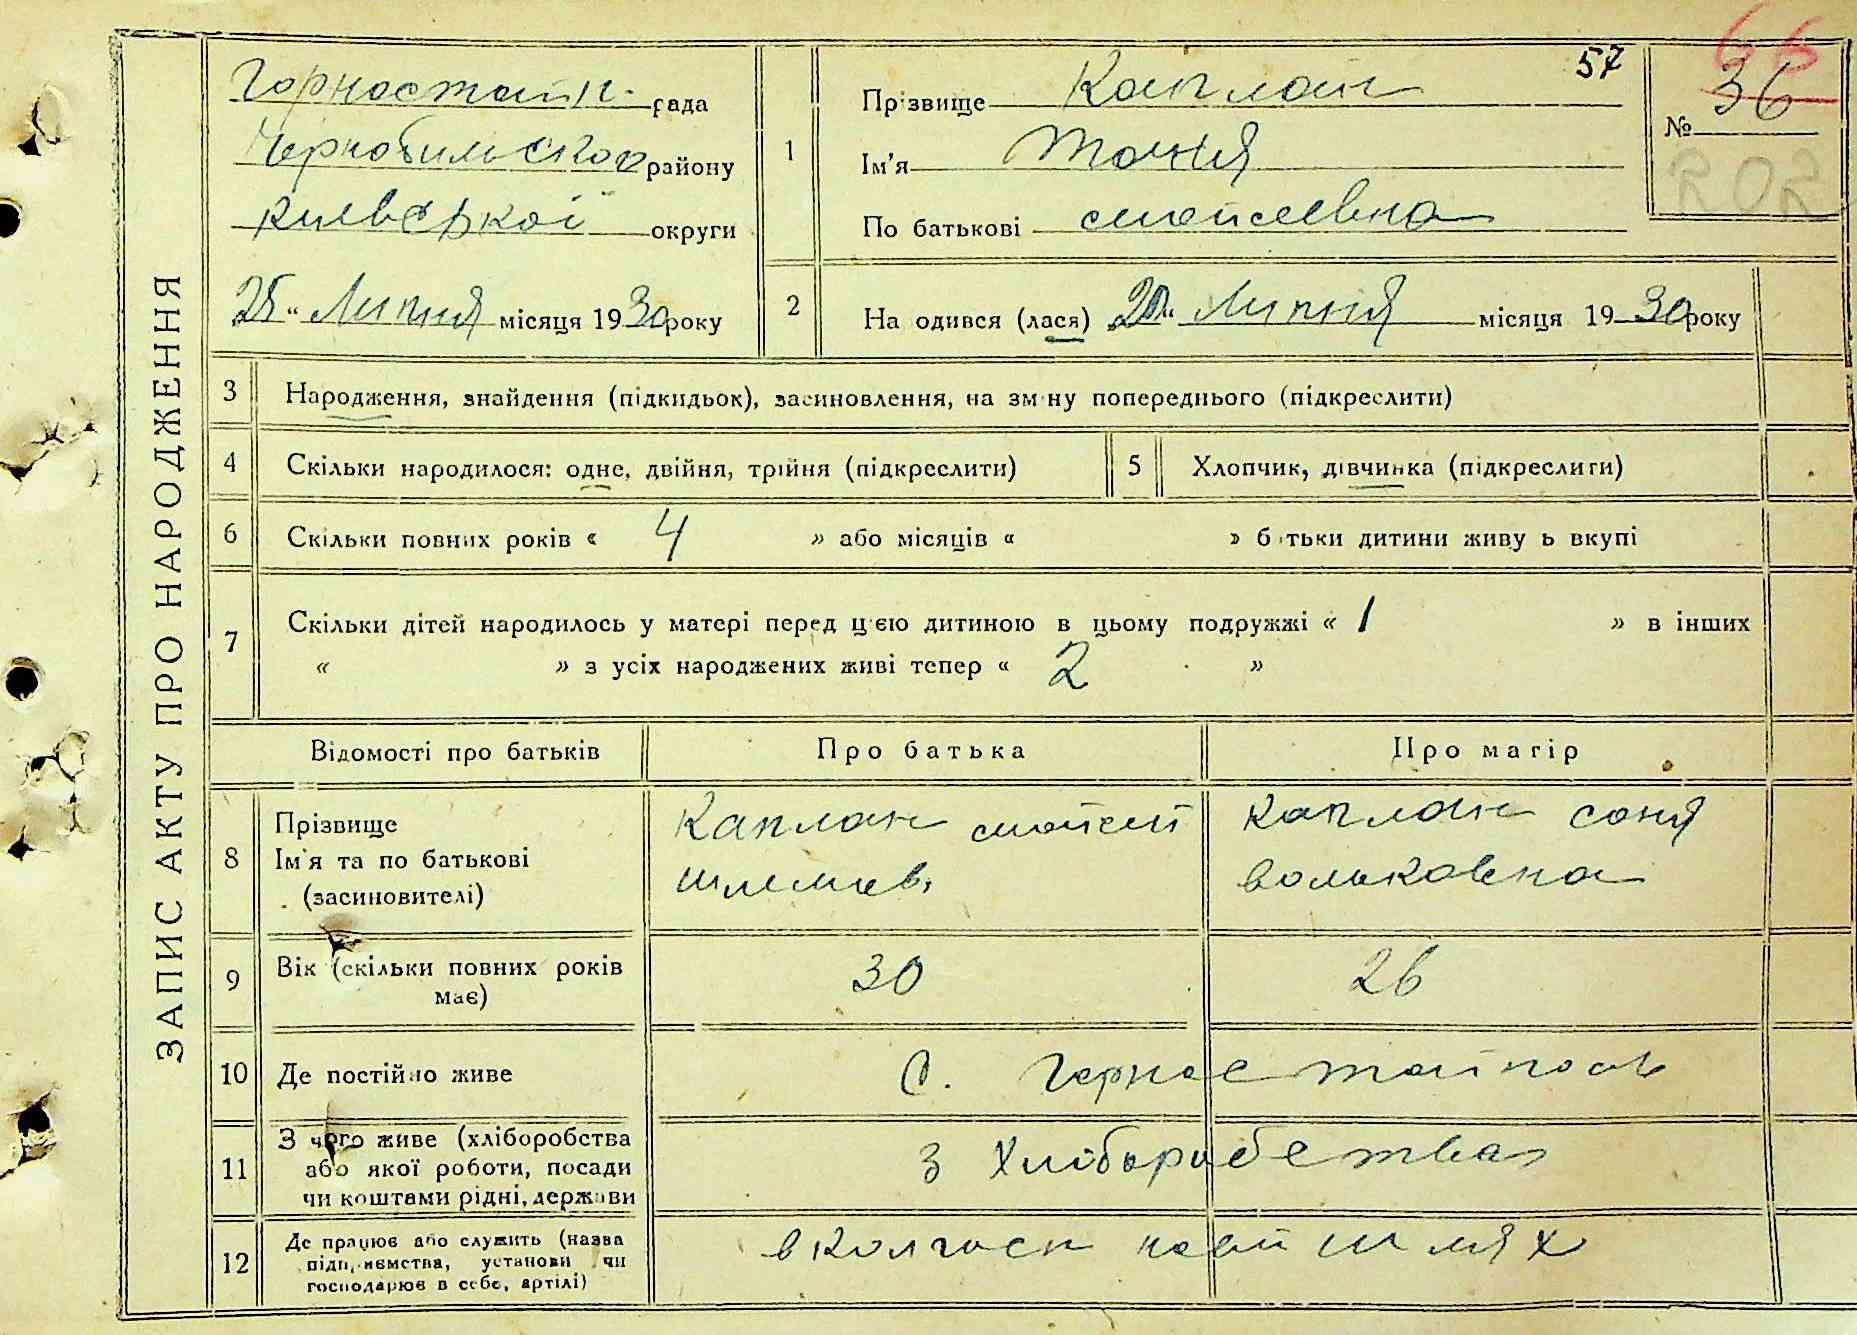 ЗАПИС АКТУ ПРО НАРОДЖЕННЯ
Горностайп. рада
Чернобильского району
Київської округи
25 " Липня місяця 1930 року
1
Прізвище Каплан
57
Ім'я Тоня
По батькові Мойсеевна
№ 36
66
202
2
На одився (лася) 20 " Липня місяця 1930 року
3 Народження, знайдення (підкидьок), засиновлення, на зм ну попереднього (підкреслити)
4 Скільки народилося: одне, двійня, трійня (підкреслити)
5 Хлопчик, дівчинка (підкреслити)
6 Скільки повних років « 4 » або місяців « » б тьки дитини живу ь вкупі
7 Скільки дітей народилось у матері перед цією дитиною в цьому подружжі « 1 » в інших
« » з усіх народжених живі тепер « 2 »
Відомості про батьків Про батька Про матір
8 Прізвище
Ім'я та по батькові
(засиновителі)
Каплан Мойсей
Шлемов.
Каплан Соня
Вольковна
9 Вік (скільки повних років
має)
30 26
10 Де постійно живе С. Горностайполь
11 З чого живе (хліборобства
або якої роботи, посади
чи коштами рідні, держави
З Хліборобства
12 Де працює або служить (назва
підприємства, установи чи
господарює в себе, артілі)
в колгосп новий шлях